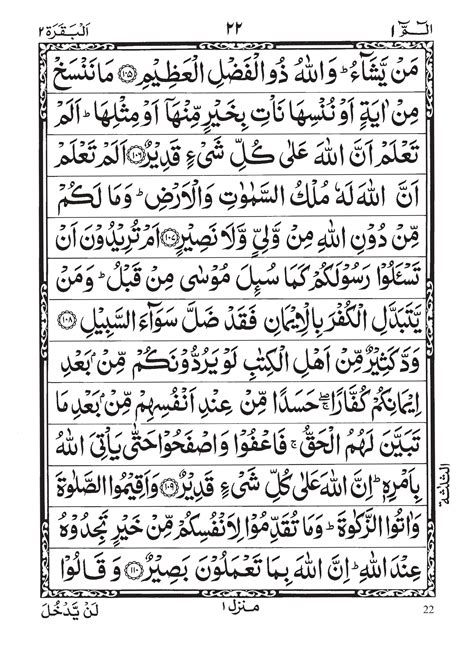 الٓمّٓ ١ ٢٢ الْبَقَرَة ٢
مَنْ يَّشَآءُ ؕ وَاللّٰهُ ذُو الْفَضْلِ الْعَظِيْمِ ۝١٠٥ مَا نَنْسَخْ
مِنْ اٰيَةٍ اَوْ نُنْسِهَا نَاْتِ بِخَيْرٍ مِّنْهَاۤ اَوْ مِثْلِهَا ؕ اَلَمْ
تَعْلَمْ اَنَّ اللّٰهَ عَلٰى كُلِّ شَىْءٍ قَدِيْرٌ ۝١٠٦ اَلَمْ تَعْلَمْ
اَنَّ اللّٰهَ لَهٗ مُلْكُ السَّمٰوٰتِ وَالْاَرْضِ ؕ وَمَا لَكُمْ
مِّنْ دُوْنِ اللّٰهِ مِنْ وَّلِىٍّ وَّلَا نَصِيْرٍ ۝١٠٧ اَمْ تُرِيْدُوْنَ اَنْ
تَسْـَٔلُوْا رَسُوْلَكُمْ كَمَا سُىِٕلَ مُوْسٰى مِنْ قَبْلُ ؕ وَمَنْ
يَّتَبَدَّلِ الْكُفْرَ بِالْاِيْمَانِ فَقَدْ ضَلَّ سَوَآءَ السَّبِيْلِ ۝١٠٨
وَدَّ كَثِيْرٌ مِّنْ اَهْلِ الْكِتٰبِ لَوْ يَرُدُّوْنَكُمْ مِّنْۢ بَعْدِ
اِيْمَانِكُمْ كُفَّارًا ۖۚ حَسَدًا مِّنْ عِنْدِ اَنْفُسِهِمْ مِّنْۢ بَعْدِ مَا
تَبَيَّنَ لَهُمُ الْحَقُّ ۚ فَاعْفُوْا وَاصْفَحُوْا حَتّٰى يَاْتِىَ اللّٰهُ
بِاَمْرِهٖ ؕ اِنَّ اللّٰهَ عَلٰى كُلِّ شَىْءٍ قَدِيْرٌ ۝١٠٩ وَاَقِيْمُوا الصَّلٰوةَ
وَاٰتُوا الزَّكٰوةَ ؕ وَمَا تُقَدِّمُوْا لِاَنْفُسِكُمْ مِّنْ خَيْرٍ تَجِدُوْهُ
عِنْدَ اللّٰهِ ؕ اِنَّ اللّٰهَ بِمَا تَعْمَلُوْنَ بَصِيْرٌ ۝١١٠ وَقَالُوْا
الثلثة
منزل ١
لَنْ يَّدْخُلَ
22